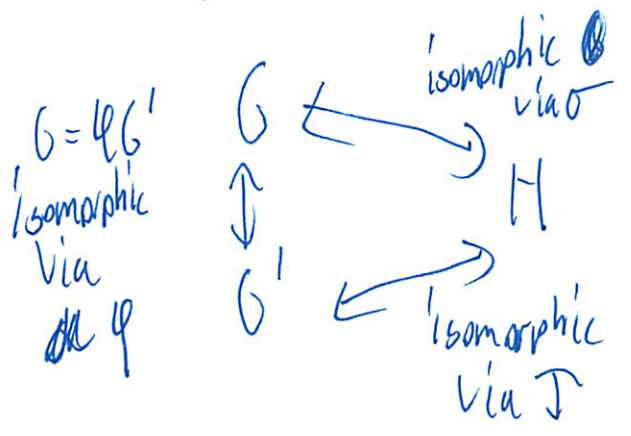 G = φG'
isomorphic
via
φ
G
G'
isomorphic
via σ
H
isomorphic
via